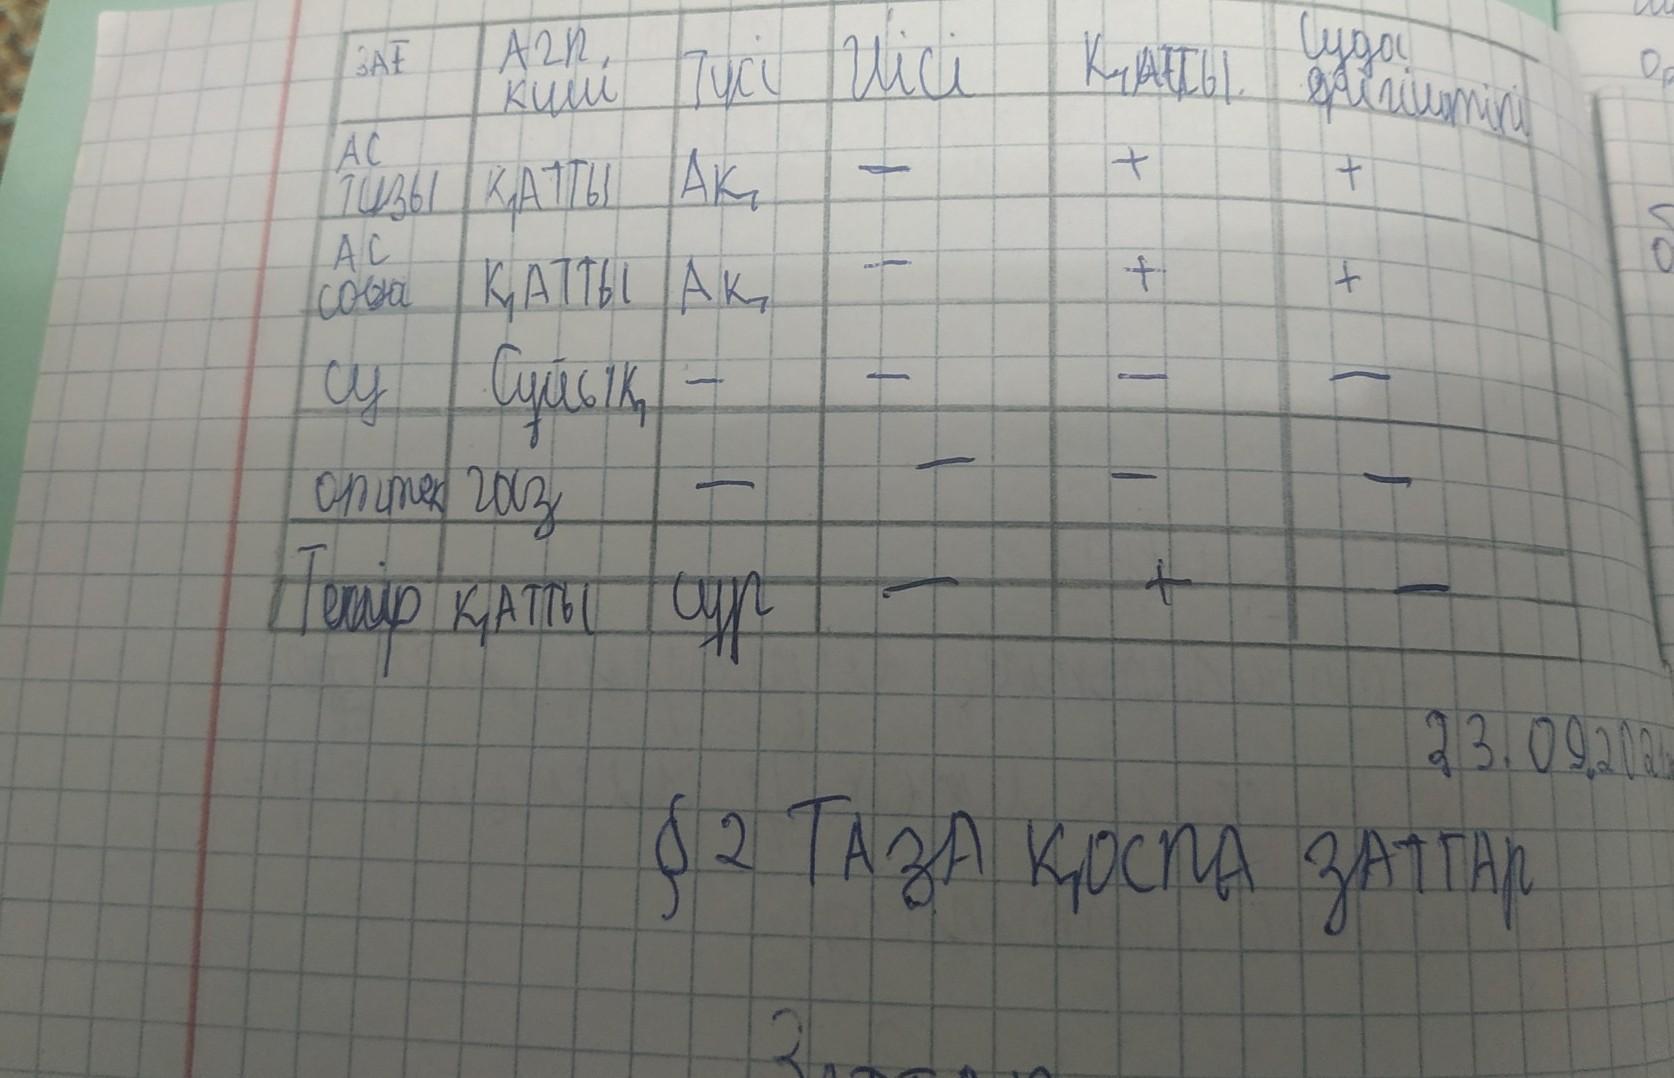 ЗАТ АГР. күші Түсі Иісі ҚАТТЫ. Суда ергіштігі
АС ТҰЗЫ ҚАТТЫ АҚ — + +
АС сода ҚАТТЫ АҚ — + +
Су Сұйық — — — —
оттек газ — — — —
Темір ҚАТТЫ сұр — + —
23.09.202
§ 2 ТАЗА ҚОСПА ЗАТТАР